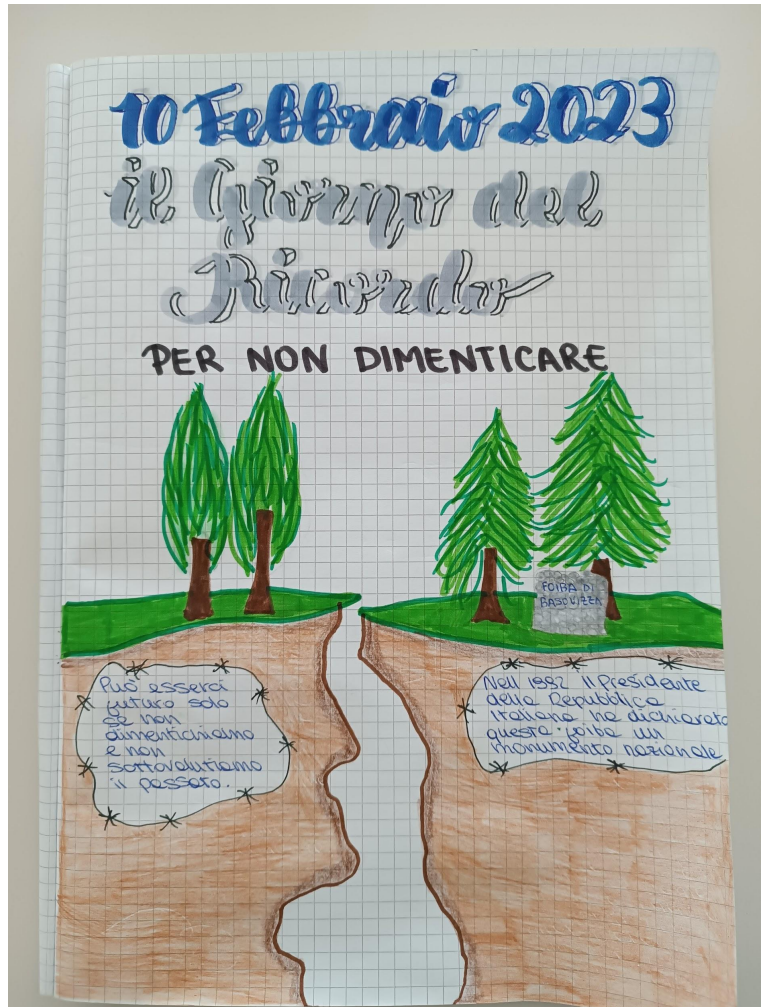 10 Febbraio 2023
il Giorno del
Ricordo
PER NON DIMENTICARE
FOIBA DI
BASOVIZZA
Può esserci
futuro solo
se non
dimentichiamo
e non
sottovalutiamo
il passato.
Nell 1992 il presidente
della Repubblica
Italiana ha dichiarato
questa foiba un
monumento nazionale